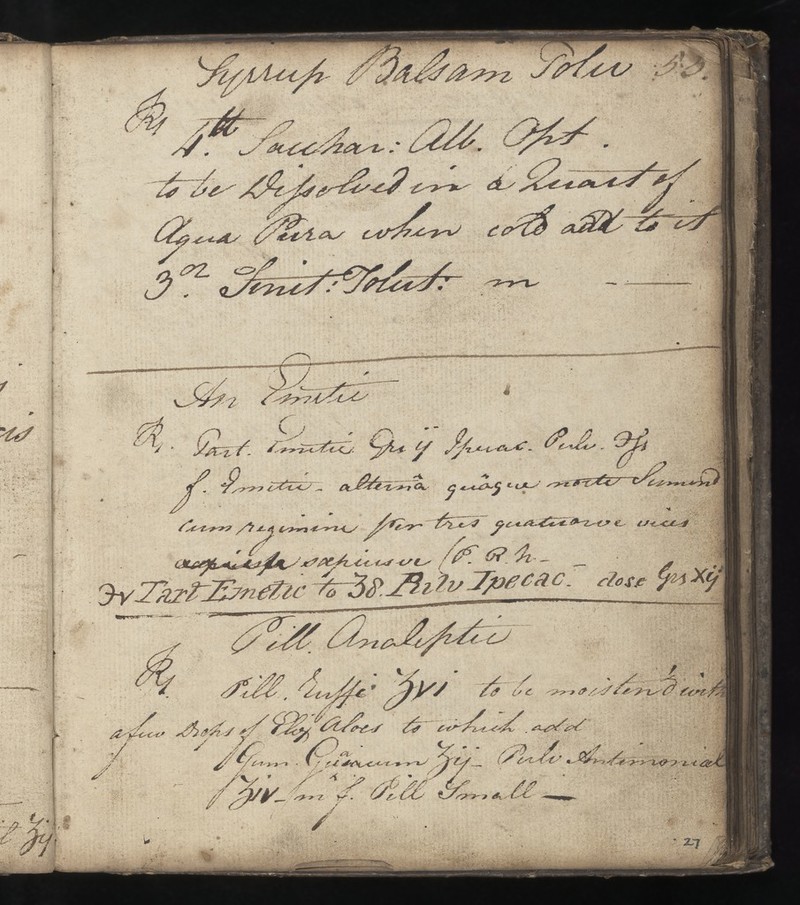 Syrrup Balsam Tolu 53.
℞ 4.lb Sacchar: Alb. Opt.
to be Dissolved in a Quart of
Aqua Pura when cold add to it
3.oz Tinct: Tolut: m
An Emetic
℞. Tart. Emetic Grs ij Ipecac. Pulv. ℈fs
f. Emetic - alternâ quâque nocte Sumend
cum regimine per tres quatuorve vices
sæpiusve (P. R. h -
℈v Tart Emetic to ℥8. Pulv Ipecac. dose Grs Xij
Pill. Analeptic
℞ Pill. Ruffi ʒvi to be moisten'd with
a few Drops of Elix Aloes to which add
Gum. Guaiacum ʒij - Pulv Antimonial
ʒiv - m f. Pill Small —
27
cis
ʒij